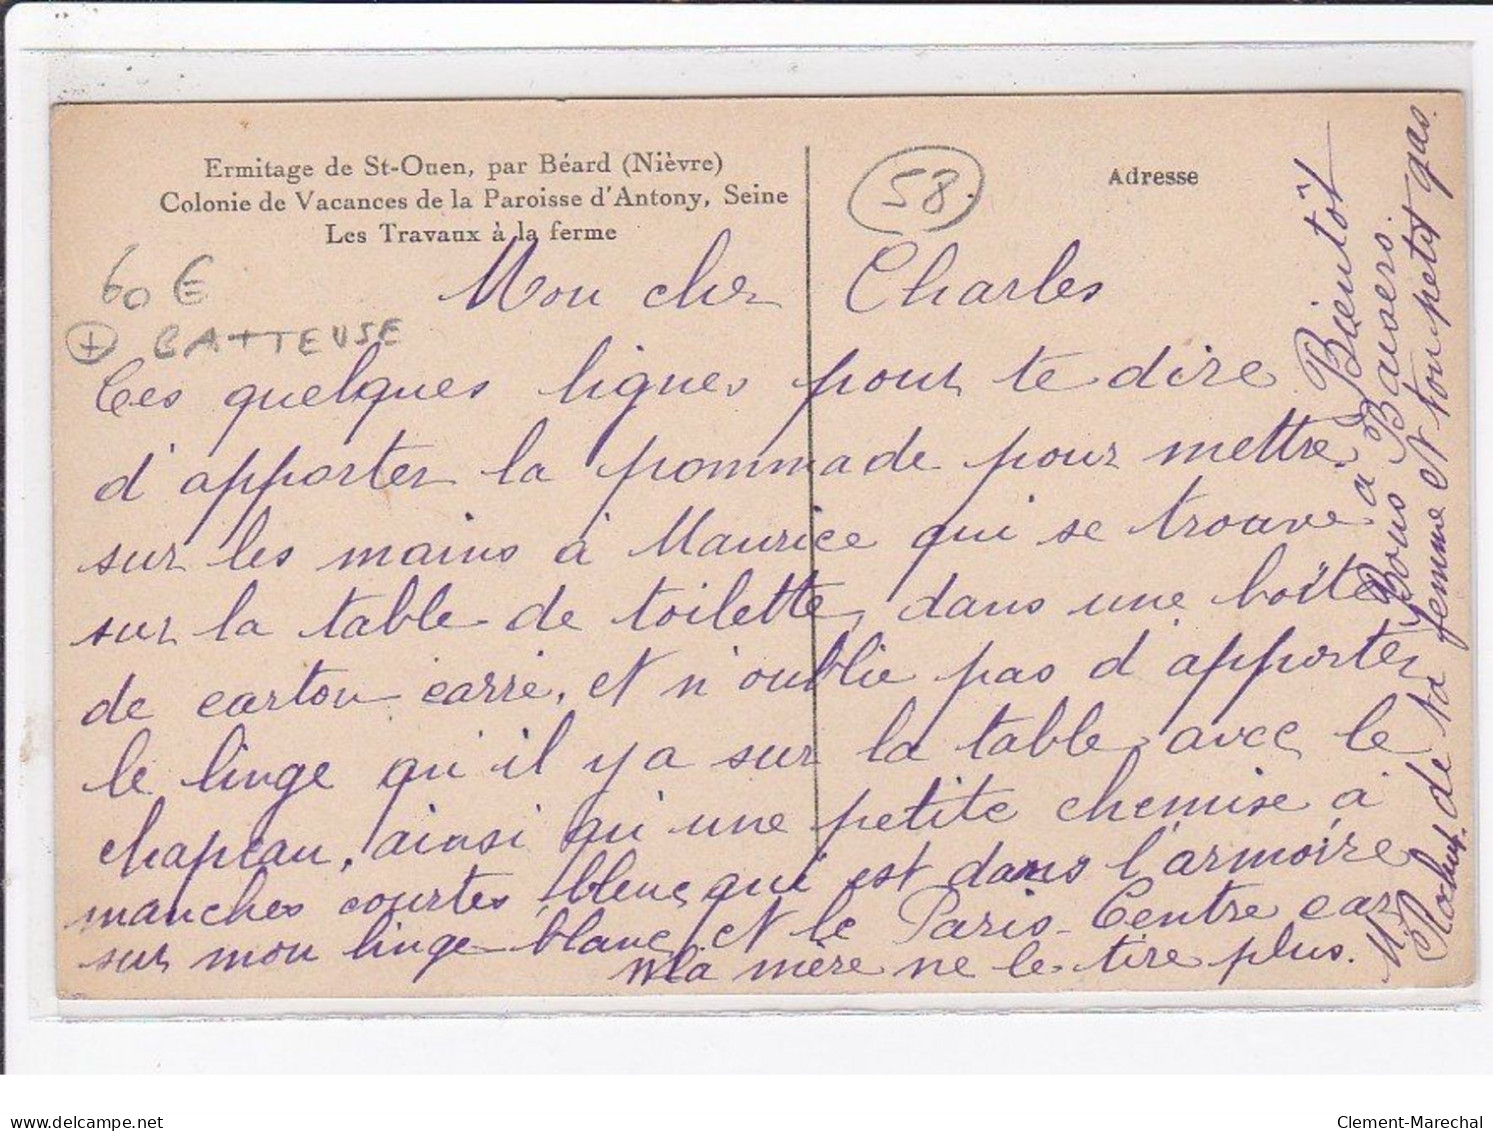 Ermitage de St-Ouen, par Béard (Nièvre)
Colonie de Vacances de la Paroisse d'Antony, Seine
Les Travaux à la ferme
58.
Adresse
60 €
+ BATTEUSE
Mon cher Charles
Ces quelques lignes pour te dire
d'apporter la pommade pour mettre
sur les mains à Maurice qui se trouve
sur la table de toilette, dans une boîte
de carton carré, et n'oublie pas d'apporter
le linge qu'il y a sur la table avec le
chapeau, ainsi qu'une petite chemise à
manches courtes bleue qui est dans l'armoire
sur mon linge blanc, et le Paris-Centre car
la mère ne le tire plus.
à Bientôt
Bons Baisers.
de ta femme et ton petit gas.
www.delcampe.net
Clement-Marechal